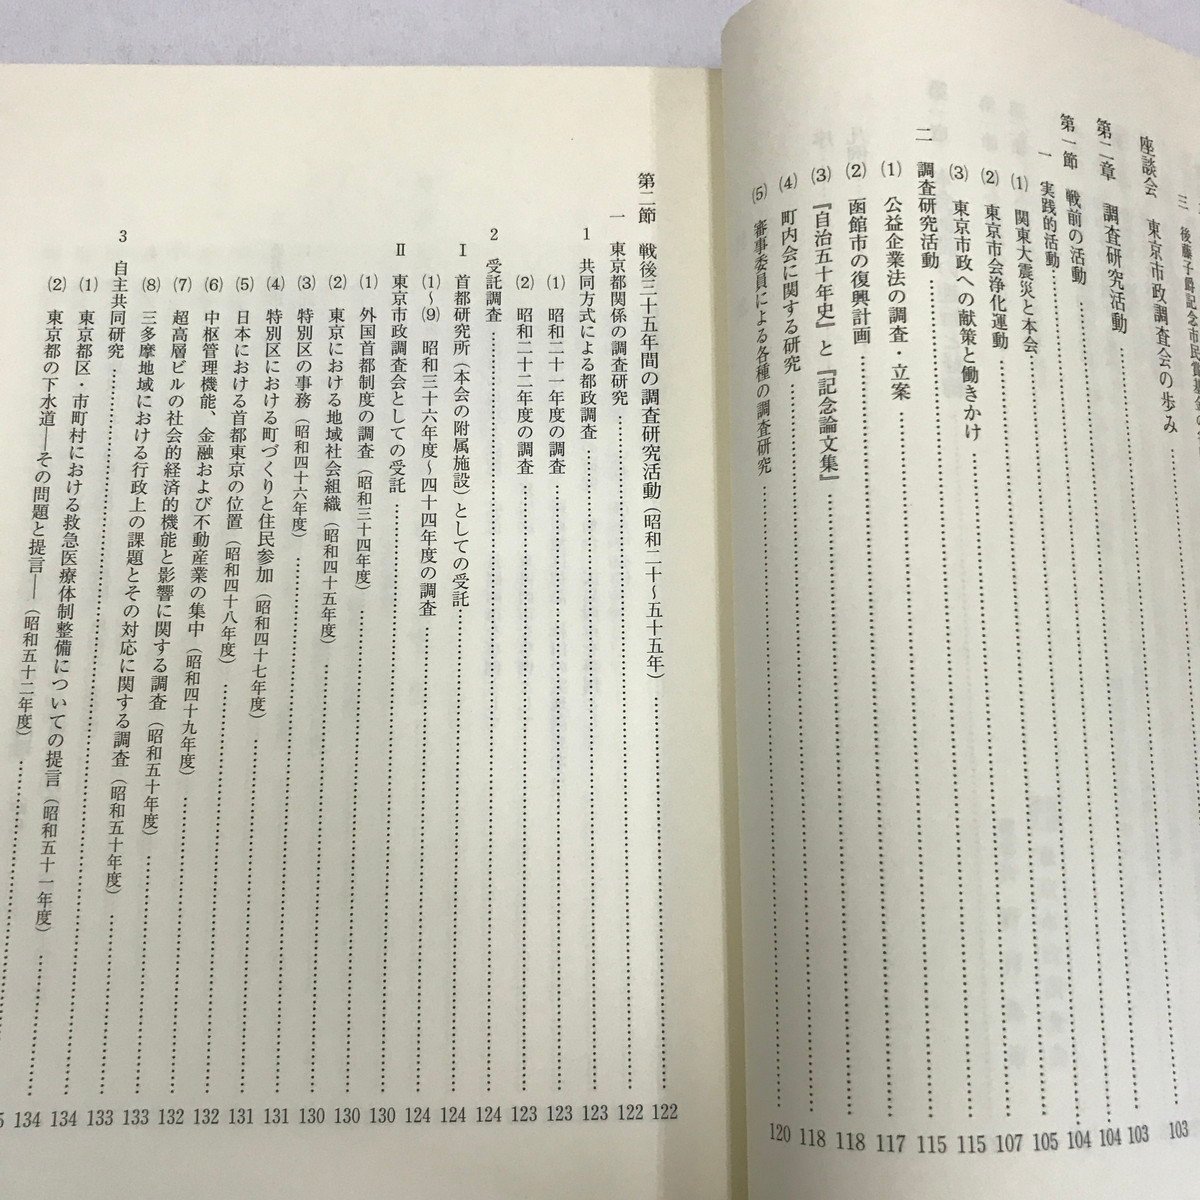 三 後藤子爵記念市民賞
座談会 東京市政調査会の歩み
第二章 調査研究活動……103
第一節 戦前の活動……103
一 実践的活動……104
⑴ 関東大震災と本会……104
⑵ 東京市会浄化運動……105
⑶ 東京市政への献策と働きかけ……107
二 調査研究活動……115
⑴ 公益企業法の調査・立案……115
⑵ 函館市の復興計画……117
⑶ 『自治五十年史』と『記念論文集』……118
⑷ 町内会に関する研究……118
⑸ 審事委員による各種の調査研究……120
第二節 戦後三十五年間の調査研究活動（昭和二十〜五十五年）……122
一 東京都関係の調査研究……122
1 共同方式による都政調査……123
⑴ 昭和二十一年度の調査……123
⑵ 昭和二十二年度の調査……123
2 受託調査……124
Ⅰ 首都研究所（本会の附属施設）としての受託……124
⑴〜⑼ 昭和三十六年度〜四十四年度の調査……124
Ⅱ 東京市政調査会としての受託……130
⑴ 外国首都制度の調査（昭和三十四年度）……130
⑵ 東京における地域社会組織（昭和四十五年度）……130
⑶ 特別区の事務（昭和四十六年度）……131
⑷ 特別区における町づくりと住民参加（昭和四十七年度）……131
⑸ 日本における首都東京の位置（昭和四十八年度）……132
⑹ 中枢管理機能、金融および不動産業の集中（昭和四十九年度）……132
⑺ 超高層ビルの社会的経済的機能と影響に関する調査（昭和五十年度）……133
⑻ 三多摩地域における行政上の課題とその対応に関する調査（昭和五十年度）……133
3 自主共同研究……134
⑴ 東京都区・市町村における救急医療体制整備についての提言（昭和五十一年度）……134
⑵ 東京都の下水道――その問題と提言――（昭和五十二年度）……5